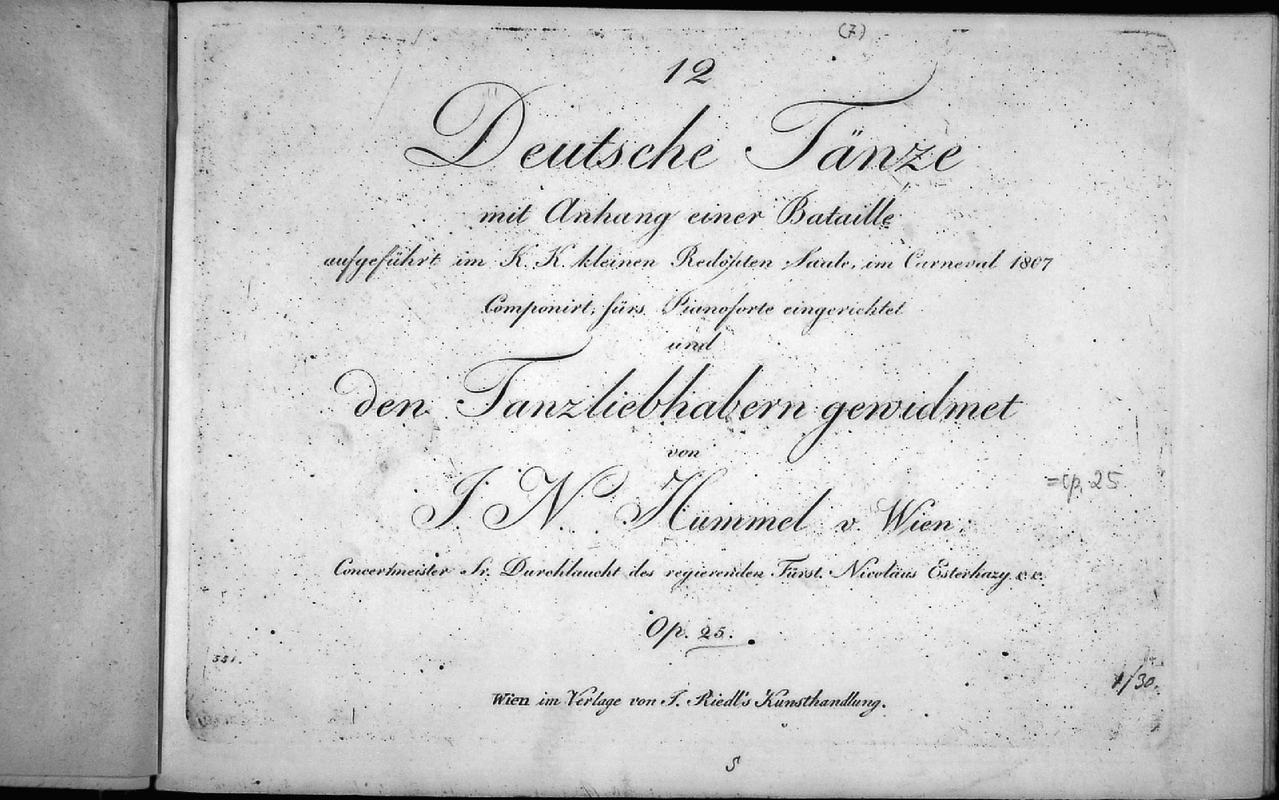 (7)
12
Deutsche Tänze
mit Anhang einer Bataille
aufgeführt im K. K. kleinen Redouten Saale, im Carneval 1807
Componirt, fürs Pianoforte eingerichtet
und
den Tanzliebhabern gewidmet
von
J. N. Hummel v. Wien.
=Op. 25
Concertmeister Sr. Durchlaucht des regierenden Fürst. Nicolaus Esterhazy &c. &c.
Op. 25.
551.
1/30.
Wien im Verlage von J. Riedl's Kunsthandlung.
5